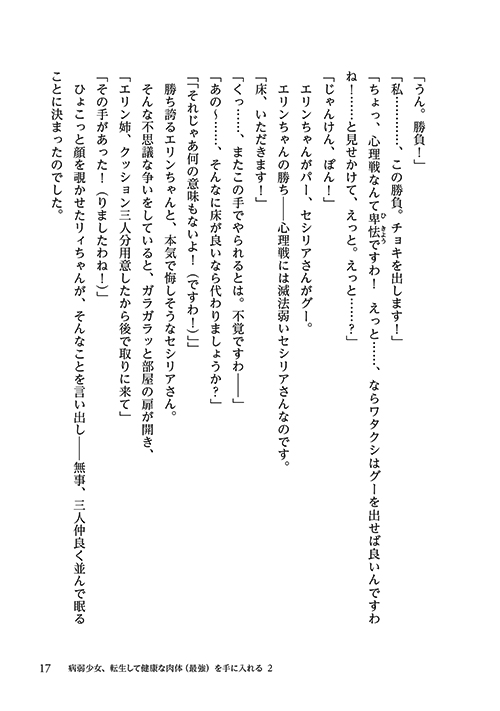 「うん。勝負！」
「私…………、この勝負。チョキを出します！」
「ちょっ、心理戦なんて卑怯ですわ！　えっと……、ならワタクシはグーを出せば良いんですわ
ね！……と見せかけて、えっと。えっと……？」
「じゃんけん、ぽん！」
エリンちゃんがパー、セシリアさんがグー。
エリンちゃんの勝ち――心理戦には滅法弱いセシリアさんなのです。
「床、いただきます！」
「くっ……、またこの手でやられるとは。不覚ですわ――」
「あの～……、そんなに床が良いなら代わりましょうか？」
「「それじゃあ何の意味もないよ！（ですわ！）」」
勝ち誇るエリンちゃんと、本気で悔しそうなセシリアさん。
そんな不思議な争いをしていると、ガラガラッと部屋の扉が開き、
「エリン姉、クッション三人分用意したから後で取りに来て」
「その手があった！（りましたわね！）」
ひょこっと顔を覗かせたリィちゃんが、そんなことを言い出し――無事、三人仲良く並んで眠る
ことに決まったのでした。
17　病弱少女、転生して健康な肉体（最強）を手に入れる 2